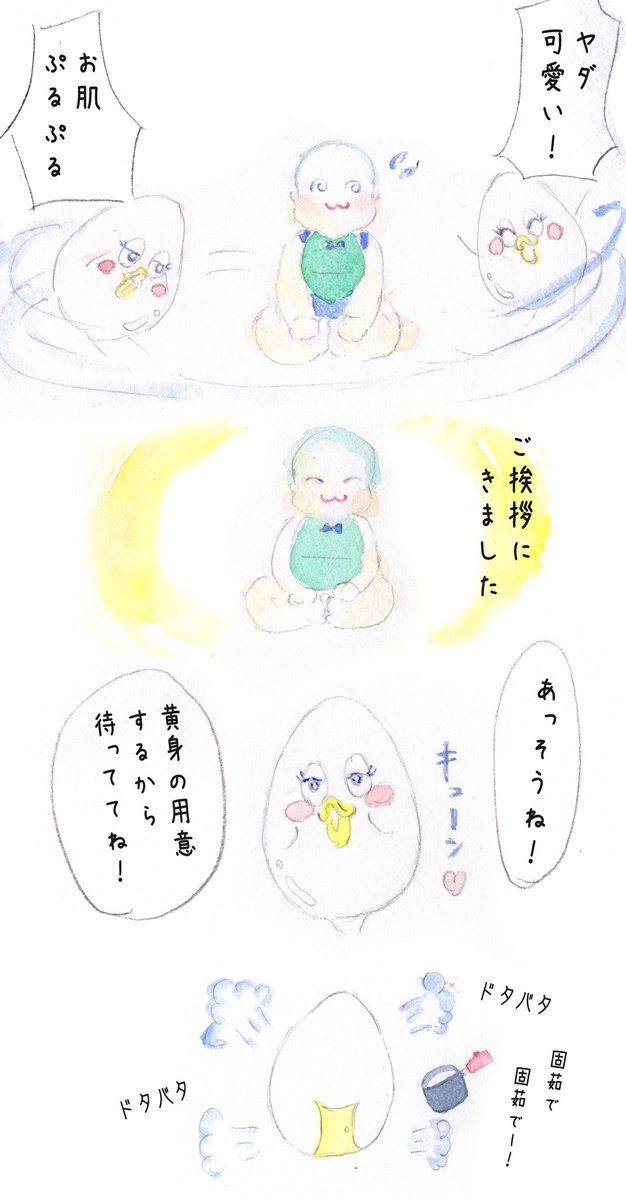 ヤダ
可愛い！
お肌
ぷるぷる
ご挨拶に
きました
あっそうね！
キューン♡
黄身の用意
するから
待っててね！
ドタバタ
固茹で
固茹でー！
ドタバタ